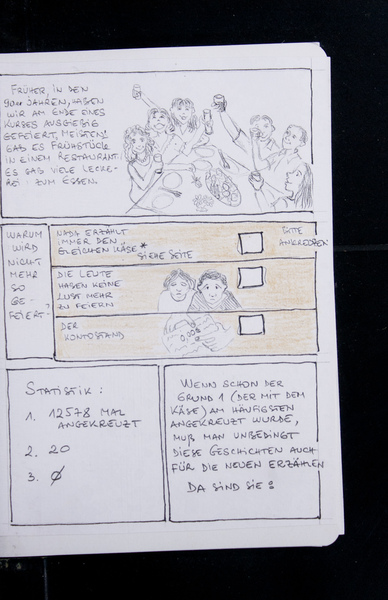 FRÜHER, IN DEN
90er JAHREN, HABEN
WIR AM ENDE EINES
KURSES AUSGIEBIG
GEFEIERT, MEISTENS
GAB ES FRÜHSTÜCK
IN EINEM RESTAURANT.
ES GAB VIELE LECKE-
REI - ZUM ESSEN.
WARUM
WIRD
NICHT
MEHR
SO
GE-
FEIERT-
NADA ERZÄHLT
IMMER DEN
GLEICHEN KÄSE*
SIEHE SEITE
BITTE
ANKREUZEN
DIE LEUTE
HABEN KEINE
LUST MEHR
ZU FEIERN
DER
KONTOSTAND
0,00€
STATISTIK:
1. 12578 MAL
ANGEKREUZT
2. 20
3. Ø
WENN SCHON DER
GRUND 1 (DER MIT DEM
KÄSE) AM HÄUFIGSTEN
ANGEKREUZT WURDE,
MUß MAN UNBEDINGT
DIESE GESCHICHTEN AUCH
FÜR DIE NEUEN ERZÄHLEN
DA SIND SIE: